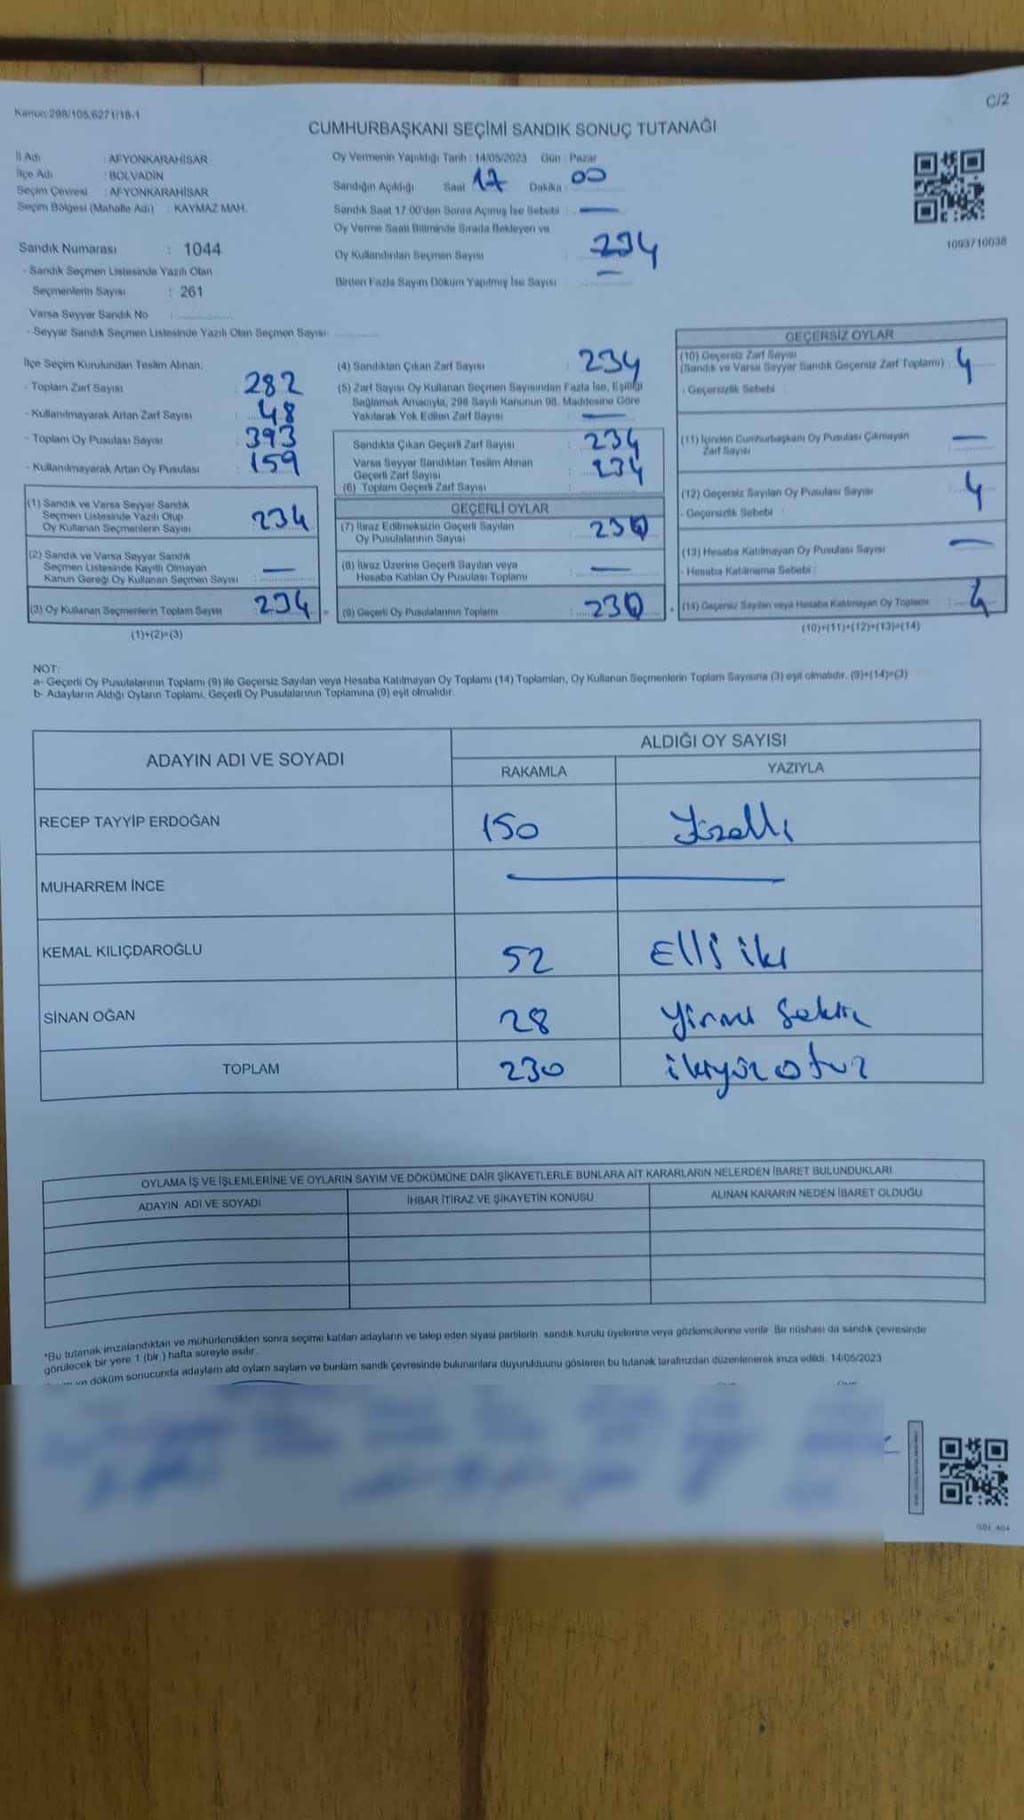 Kanun:298/105,6271/18-1
C/2
CUMHURBAŞKANI SEÇİMİ SANDIK SONUÇ TUTANAĞI
İl Adı : AFYONKARAHİSAR
İlçe Adı : BOLVADİN
Seçim Çevresi : AFYONKARAHİSAR
Seçim Bölgesi (Mahalle Adı) : KAYMAZ MAH.
Oy Vermenin Yapıldığı Tarih : 14/05/2023 Gün : Pazar
Sandığın Açıldığı Saat 17 Dakika : 00
Sandık Saat 17.00'den Sonra Açılmış İse Sebebi : —
Oy Verme Saati Bitiminde Sırada Bekleyen ve
Oy Kullandırılan Seçmen Sayısı : 234
Birden Fazla Sayım Döküm Yapılmış İse Sayısı —
1093710038
Sandık Numarası : 1044
- Sandık Seçmen Listesinde Yazılı Olan
Seçmenlerin Sayısı : 261
Varsa Seyyar Sandık No :
- Seyyar Sandık Seçmen Listesinde Yazılı Olan Seçmen Sayısı
İlçe Seçim Kurulundan Teslim Alınan:
- Toplam Zarf Sayısı : 282
- Kullanılmayarak Artan Zarf Sayısı : 48
- Toplam Oy Pusulası Sayısı : 393
- Kullanılmayarak Artan Oy Pusulası : 159
(1) Sandık ve Varsa Seyyar Sandık
Seçmen Listesinde Yazılı Olup
Oy Kullanan Seçmenlerin Sayısı 234
(2) Sandık ve Varsa Seyyar Sandık
Seçmen Listesinde Kayıtlı Olmayan
Kanun Gereği Oy Kullanan Seçmen Sayısı —
(3) Oy Kullanan Seçmenlerin Toplam Sayısı 234 =
(1)+(2)=(3)
(4) Sandıktan Çıkan Zarf Sayısı : 234
(5) Zarf Sayısı Oy Kullanan Seçmen Sayısından Fazla İse, Eşitliği
Sağlamak Amacıyla, 298 Sayılı Kanunun 98. Maddesine Göre
Yakılarak Yok Edilen Zarf Sayısı : —
Sandıkta Çıkan Geçerli Zarf Sayısı : 234
Varsa Seyyar Sandıktan Teslim Alınan
Geçerli Zarf Sayısı : 234
(6) Toplam Geçerli Zarf Sayısı
GEÇERLİ OYLAR
(7) İtiraz Edilmeksizin Geçerli Sayılan
Oy Pusulalarının Sayısı : 230
(8) İtiraz Üzerine Geçerli Sayılan veya
Hesaba Katılan Oy Pusulası Toplamı : —
(9) Geçerli Oy Pusulalarının Toplamı : 230 +
GEÇERSİZ OYLAR
(10) Geçersiz Zarf Sayısı
(Sandık ve Varsa Seyyar Sandık Geçersiz Zarf Toplamı) : 4
- Geçersizlik Sebebi :
(11) İçinden Cumhurbaşkanı Oy Pusulası Çıkmayan
Zarf Sayısı : —
(12) Geçersiz Sayılan Oy Pusulası Sayısı : 4
- Geçersizlik Sebebi :
(13) Hesaba Katılmayan Oy Pusulası Sayısı : —
- Hesaba Katılmama Sebebi :
(14) Geçersiz Sayılan veya Hesaba Katılmayan Oy Toplamı : 4
(10)+(11)+(12)+(13)=(14)
NOT:
a- Geçerli Oy Pusulalarının Toplamı (9) ile Geçersiz Sayılan veya Hesaba Katılmayan Oy Toplamı (14) Toplamları, Oy Kullanan Seçmenlerin Toplam Sayısına (3) eşit olmalıdır. (9)+(14)=(3)
b- Adayların Aldığı Oyların Toplamı, Geçerli Oy Pusulalarının Toplamına (9) eşit olmalıdır.
ADAYIN ADI VE SOYADI
ALDIĞI OY SAYISI
RAKAMLA YAZIYLA
RECEP TAYYİP ERDOĞAN 150 Yüzelli
MUHARREM İNCE —
KEMAL KILIÇDAROĞLU 52 Elli iki
SİNAN OĞAN 28 Yirmi Sekiz
TOPLAM 230 ikiyüz otuz
OYLAMA İŞ VE İŞLEMLERİNE VE OYLARIN SAYIM VE DÖKÜMÜNE DAİR ŞİKAYETLERLE BUNLARA AİT KARARLARIN NELERDEN İBARET BULUNDUKLARI
ADAYIN ADI VE SOYADI İHBAR İTİRAZ VE ŞİKAYETİN KONUSU ALINAN KARARIN NEDEN İBARET OLDUĞU
*Bu tutanak imzalandıktan ve mühürlendikten sonra seçime katılan adayların ve talep eden siyasi partilerin sandık kurulu üyelerine veya gözlemcilerine verilir. Bir nüshası da sandık çevresinde
görülecek bir yere 1 (bir ) hafta süreyle asılır.
ve döküm sonucunda adayların aldığı oyların sayılan ve bunların sandık çevresinde bulunanlara duyurulduğunu gösteren bu tutanak tarafımızdan düzenlenerek imza edildi. 14/05/2023